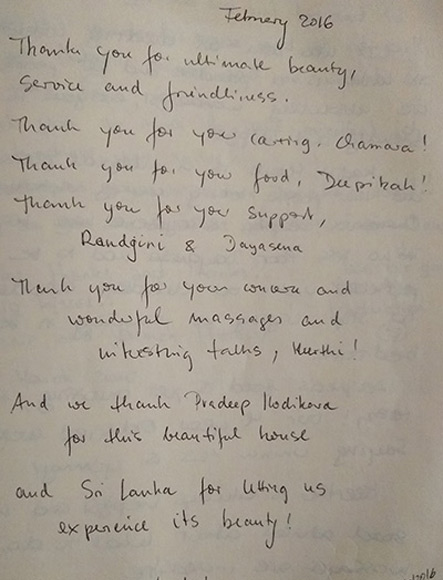 February 2016
Thank you for ultimate beauty,
service and friendliness.
Thank you for your caring, Chamara!
Thank you for your food, Deepikah!
Thank you for your support,
Randgiri & Dayasena
Thank you for your concern and
wonderful massages and
interesting talks, Keerthi!
And we thank Pradeep Kodikara
for this beautiful house
and Sri Lanka for letting us
experience its beauty!